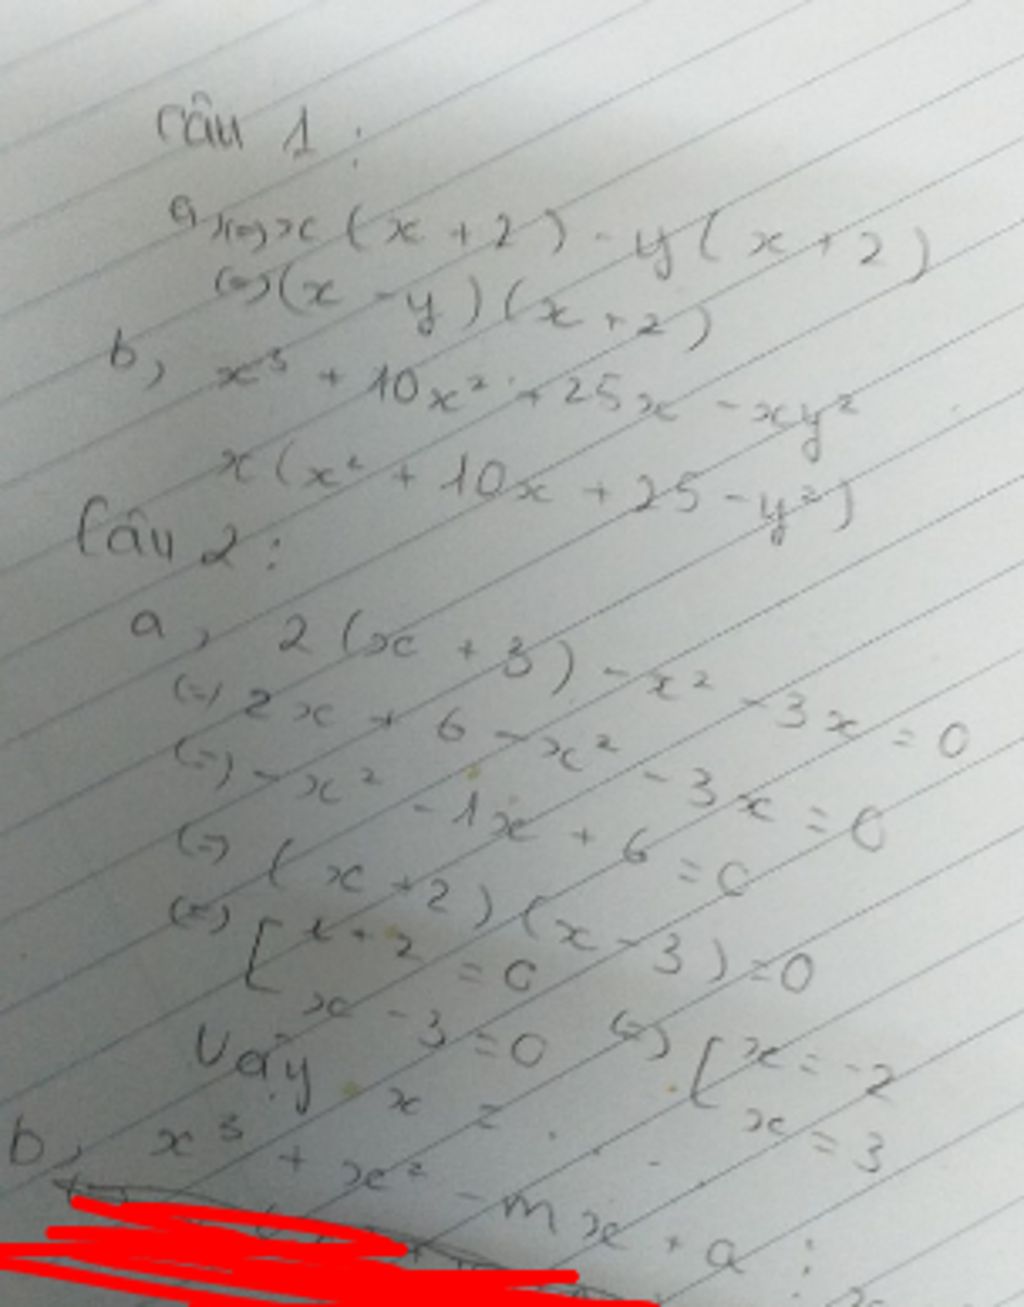 Câu 1 :
a, <=> x(x + 2) - y(x + 2)
<=> (x - y)(x + 2)
b, x³ + 10x² + 25x - xy²
x(x² + 10x + 25 - y²)
Câu 2 :
a, 2(x + 3) - x² - 3x = 0
<=> 2x + 6 - x² - 3x = 0
<=> - x² - 1x + 6 = 0
<=> (x + 2)(x - 3) = 0
<=> [ x + 2 = 0
x - 3 = 0 <=> [ x = -2
x = 3
Vậy x = . . .
b, x³ + x² - mx + a :